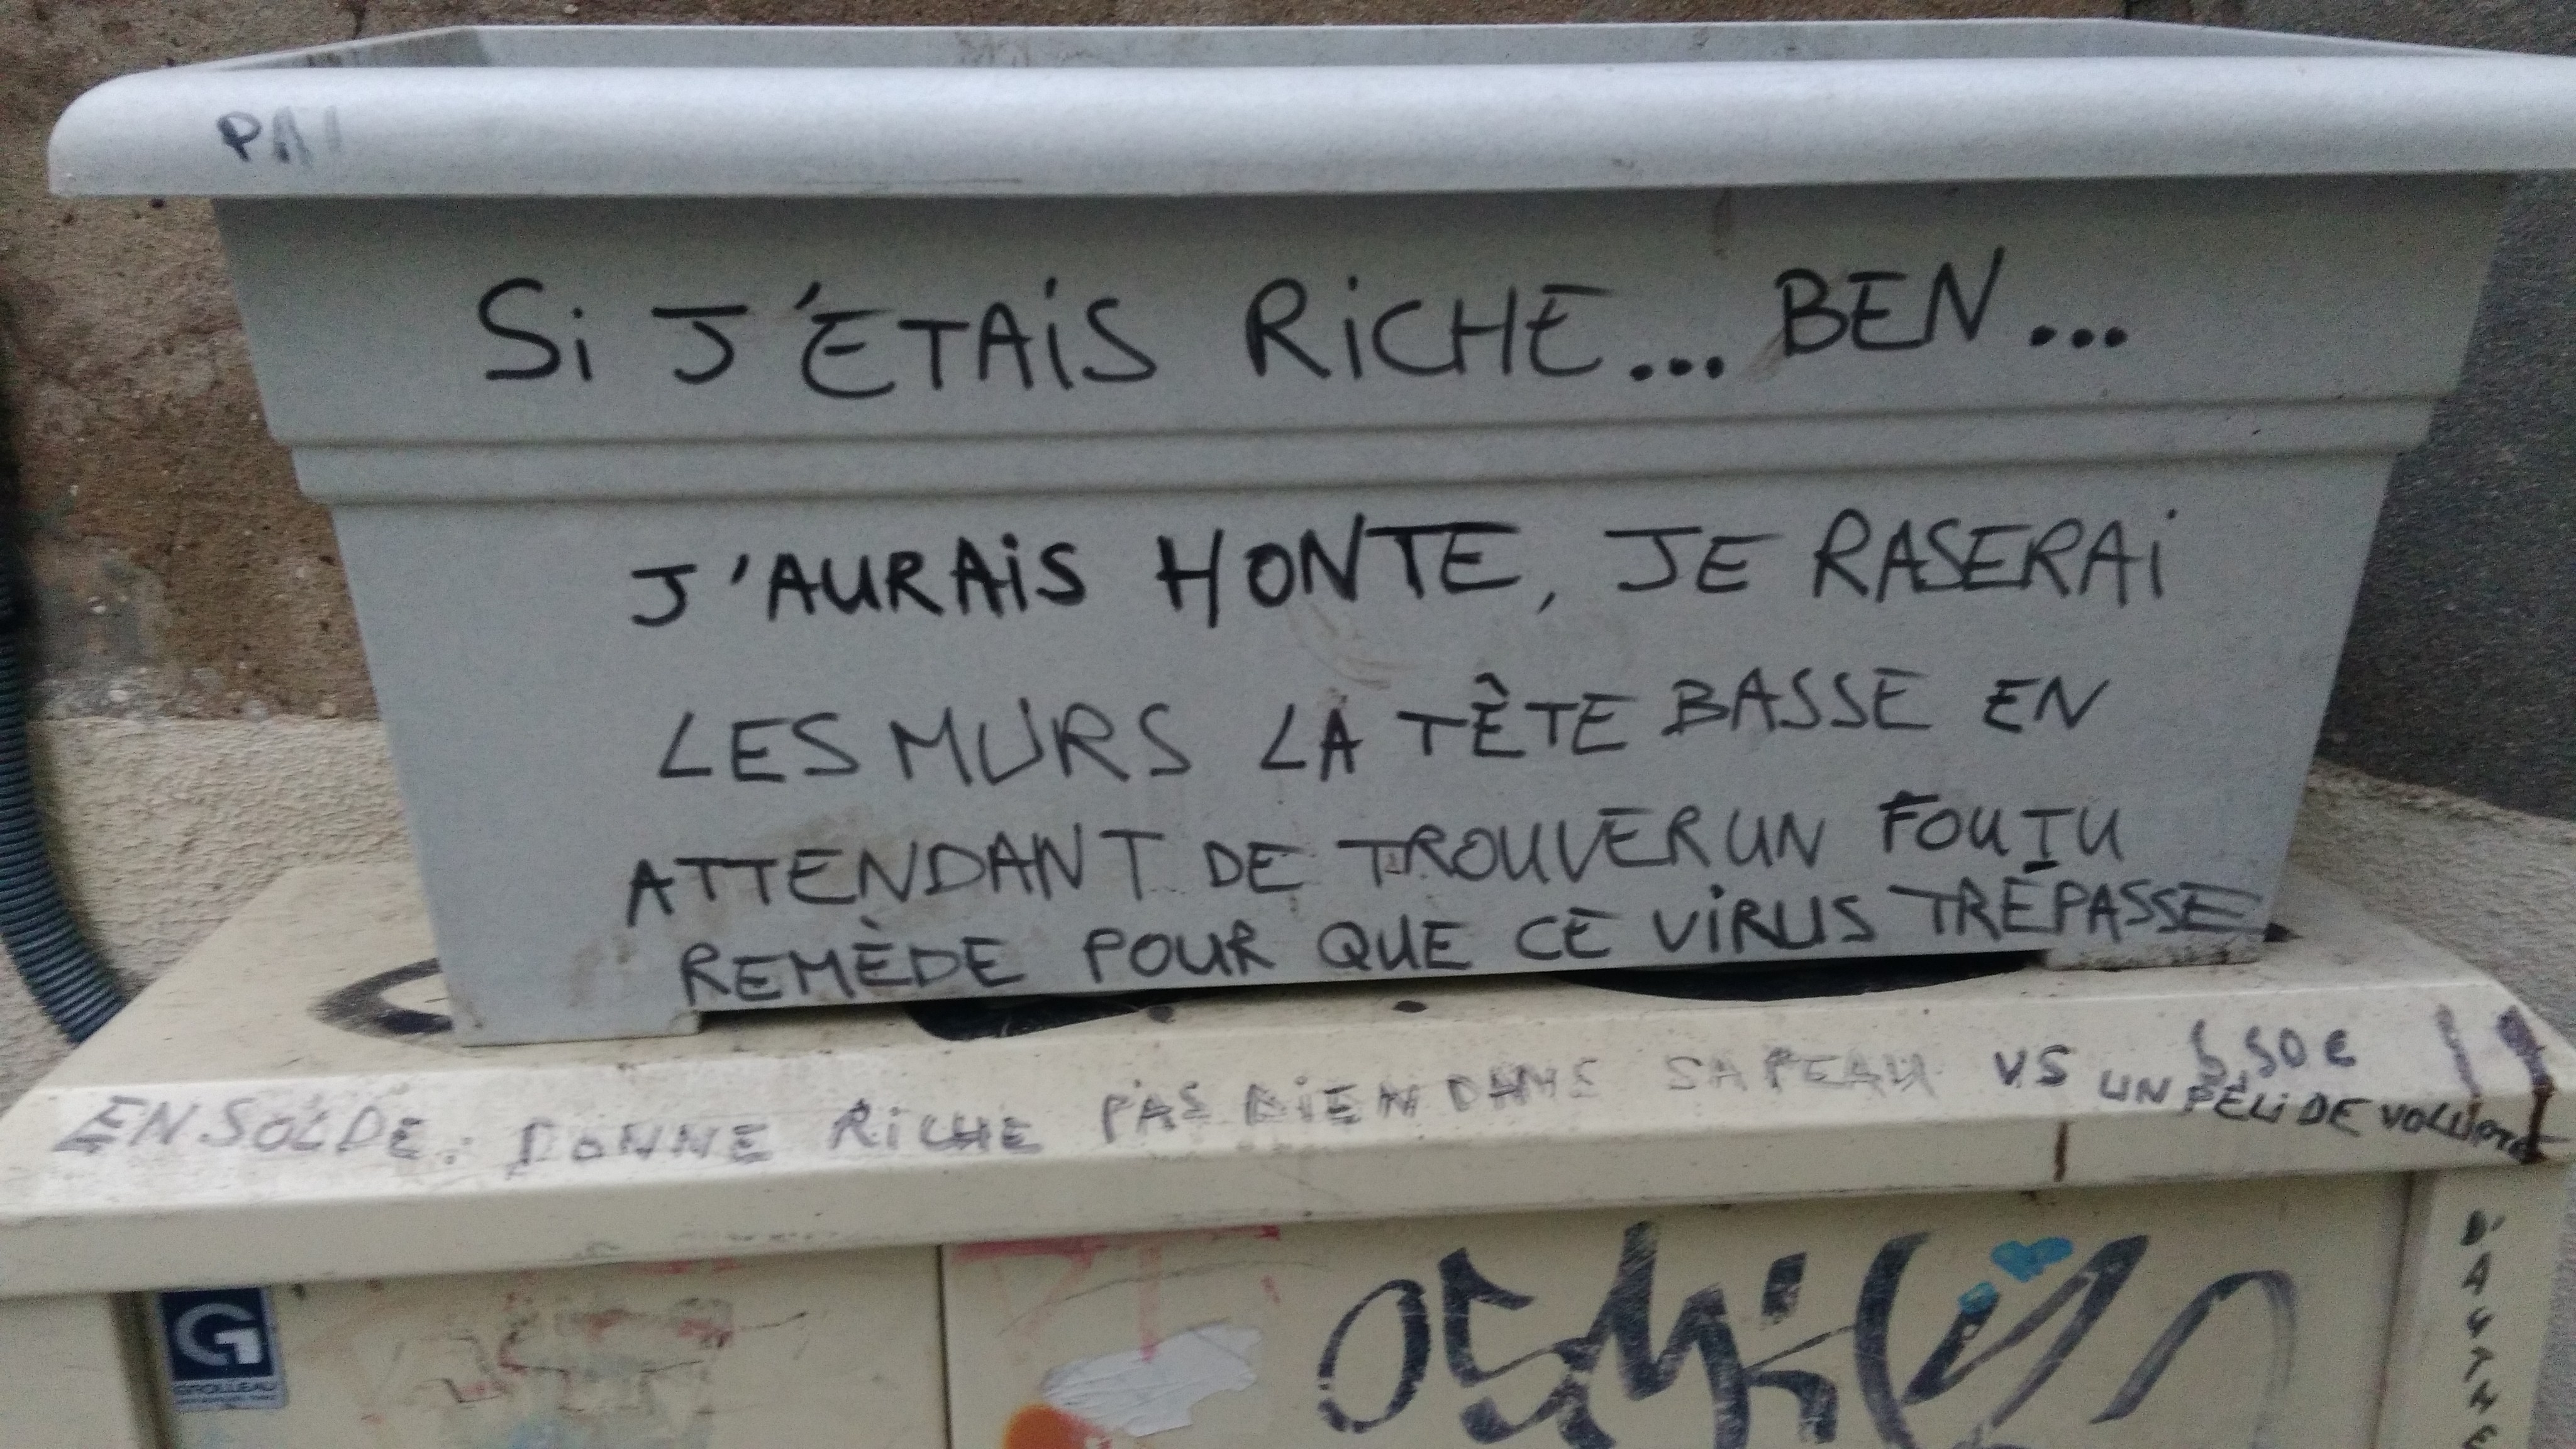 PAI
Si J'ETAiS RiCHE... BEN...
J'AURAiS HONTE, JE RASERAi
LES MURS LA TÊTE BASSE EN
ATTENDANT DE TROUVER UN FOUTU
REMÈDE POUR QUE CE ViRUS TRÉPASSE
EN SOLDE: DONNE RiCHE PAS BiEN DANS SA PEAU VS
UN PÉLi DE
G
GROLLEAU